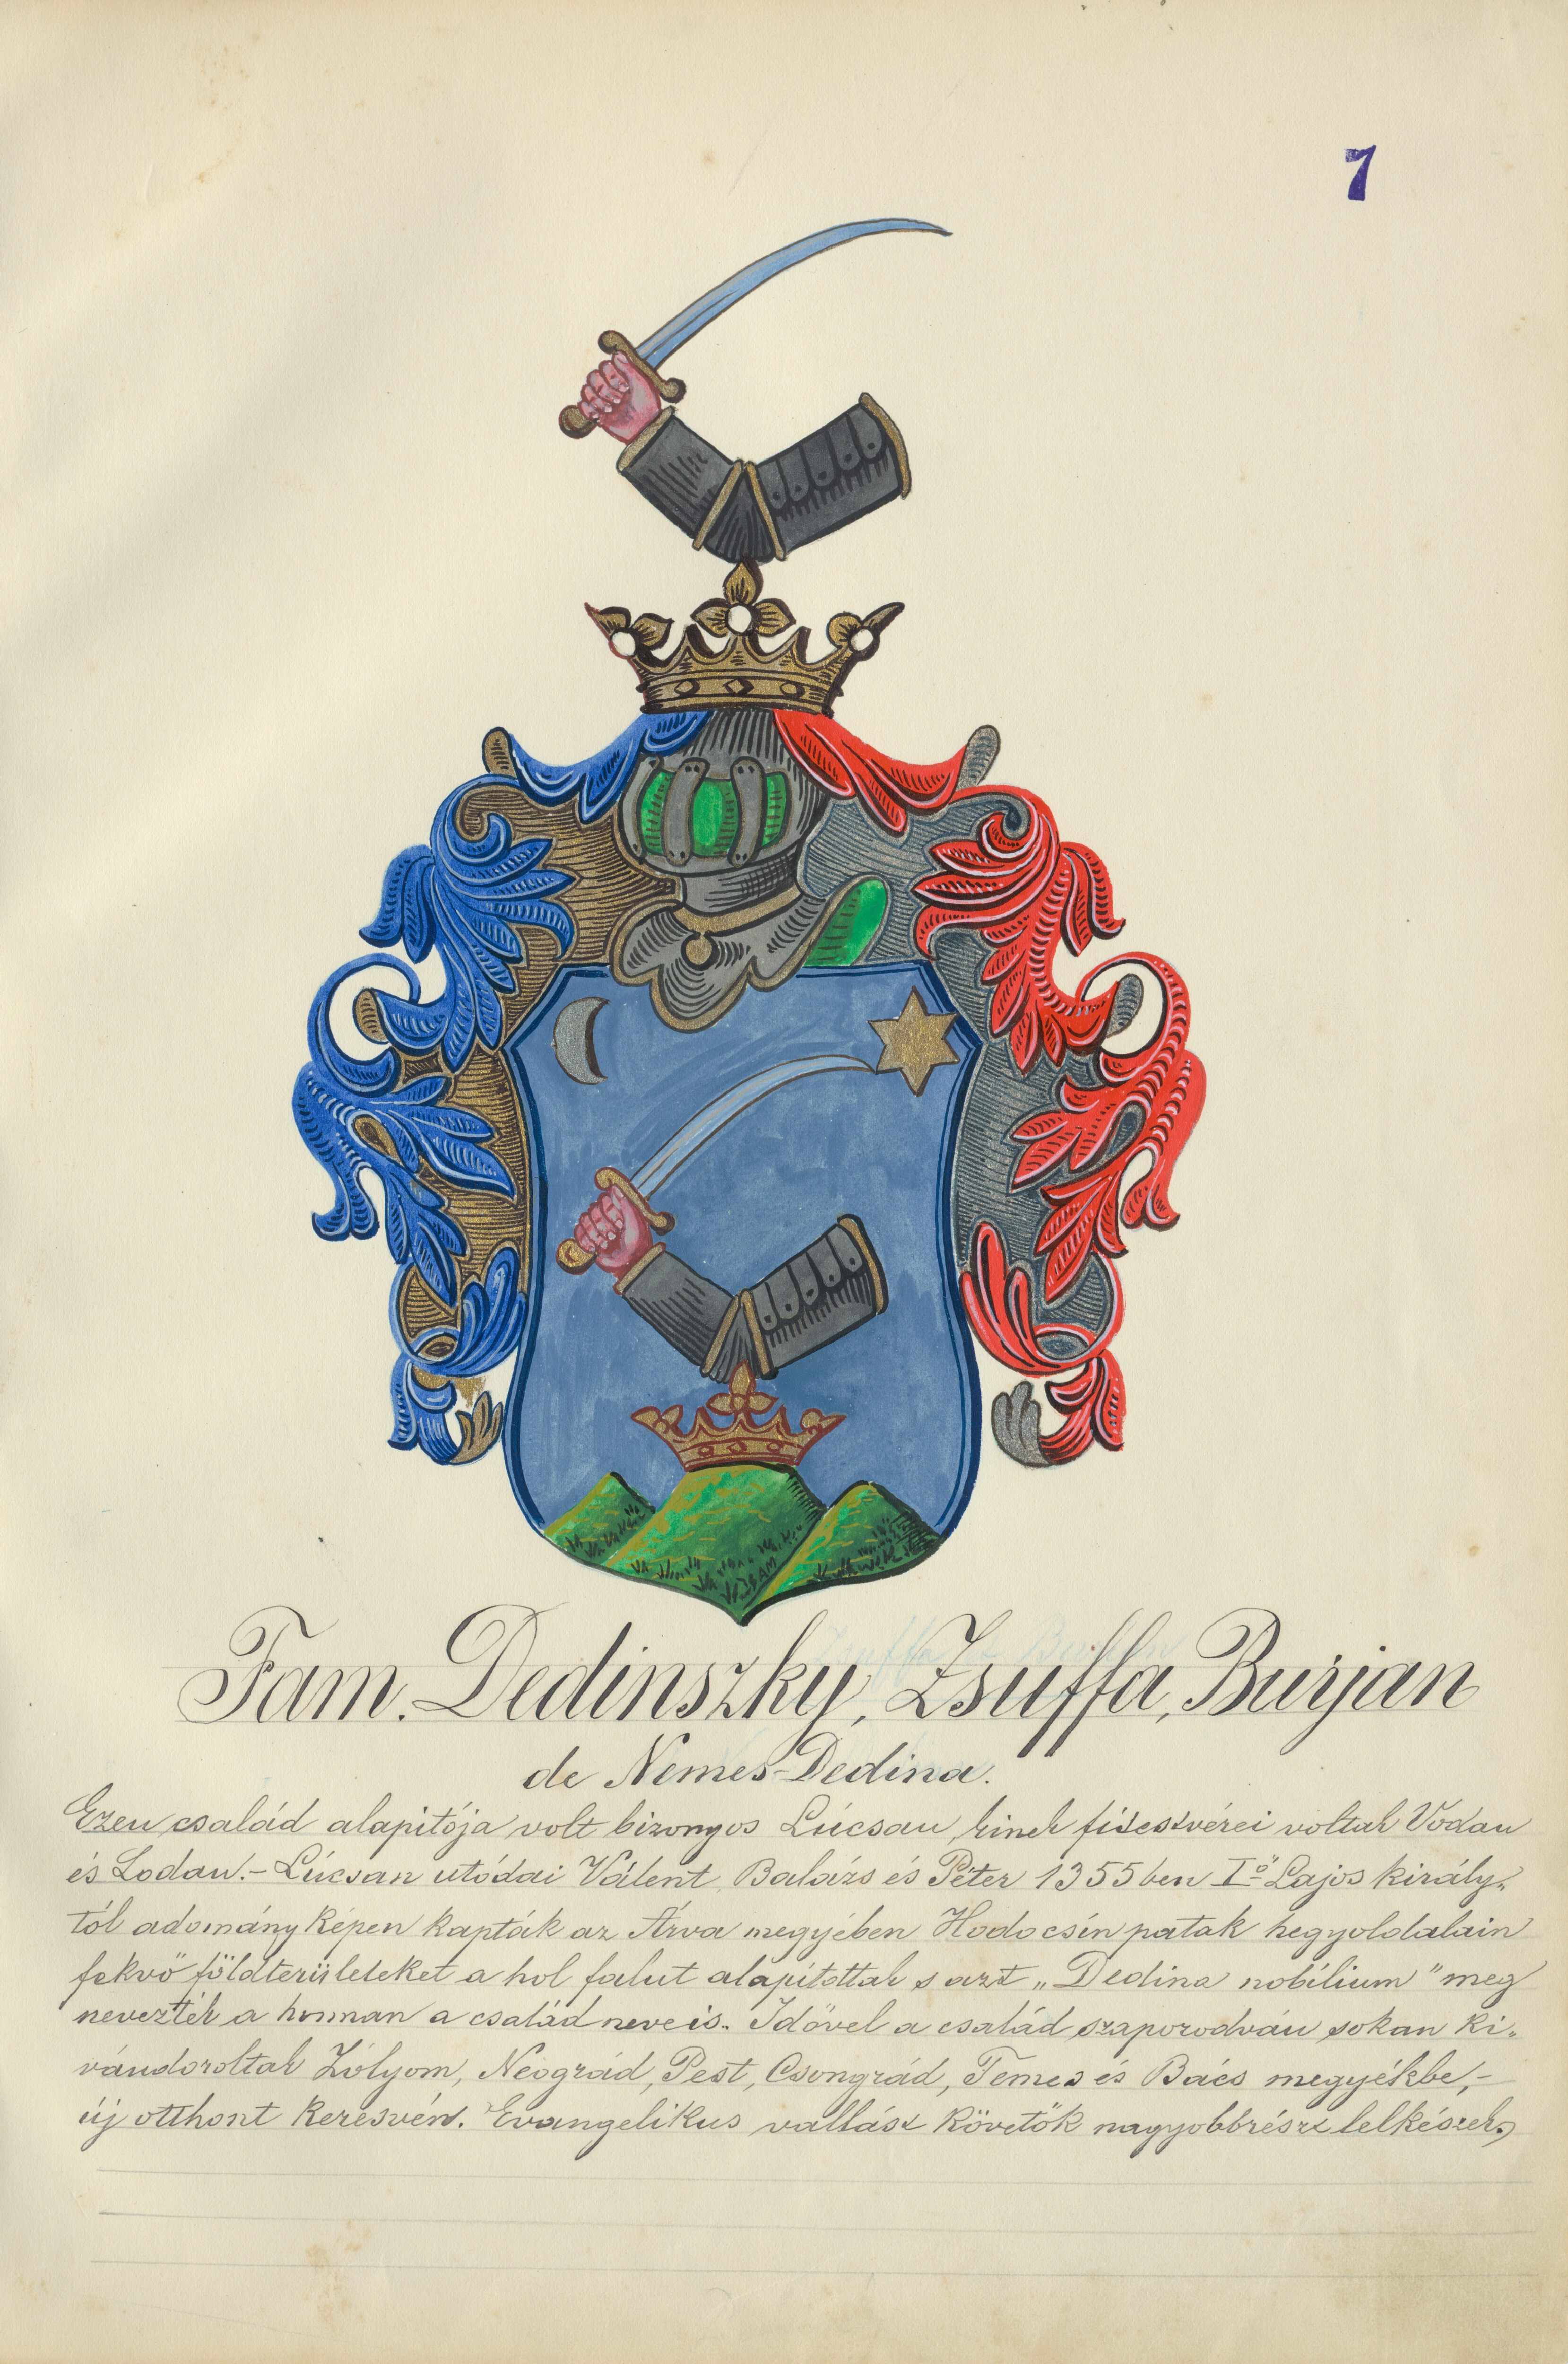 7
Fam. Dedinszky, Zsuffa, Burjan
de Nemes-Dedina.
Ezen család alapitója volt bizonyos Lúcsan, kinek fitestvérei voltak Vodan
és Lodan.- Lúcsan utódai Válent, Balázs és Péter 1355ben Iő Lajos király-
tól adományképen kapták az Árva megyében Hodocsín patak hegyoldalain
fekvő földterületeket a hol falut alapitottak s azt „Dedina nobilium" meg
nevezték a honnan a család neve is. Idővel a család szaporodván sokan ki-
vándoroltak Zólyom, Neográd, Pest, Csongrád, Temes és Bács megyékbe,-
új otthont keresvén. Evangelikus vallást követők nagyobbrészt lelkészek.